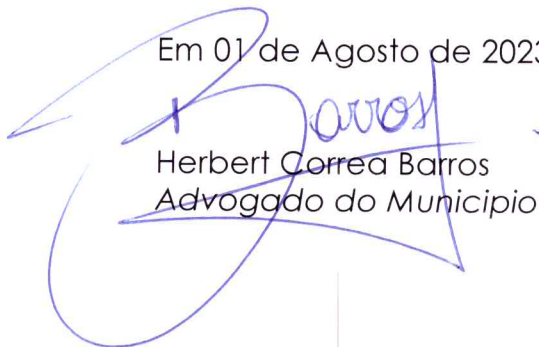 Em 01 de Agosto de 2023
Barros
Herbert Correa Barros
Advogado do Municipio